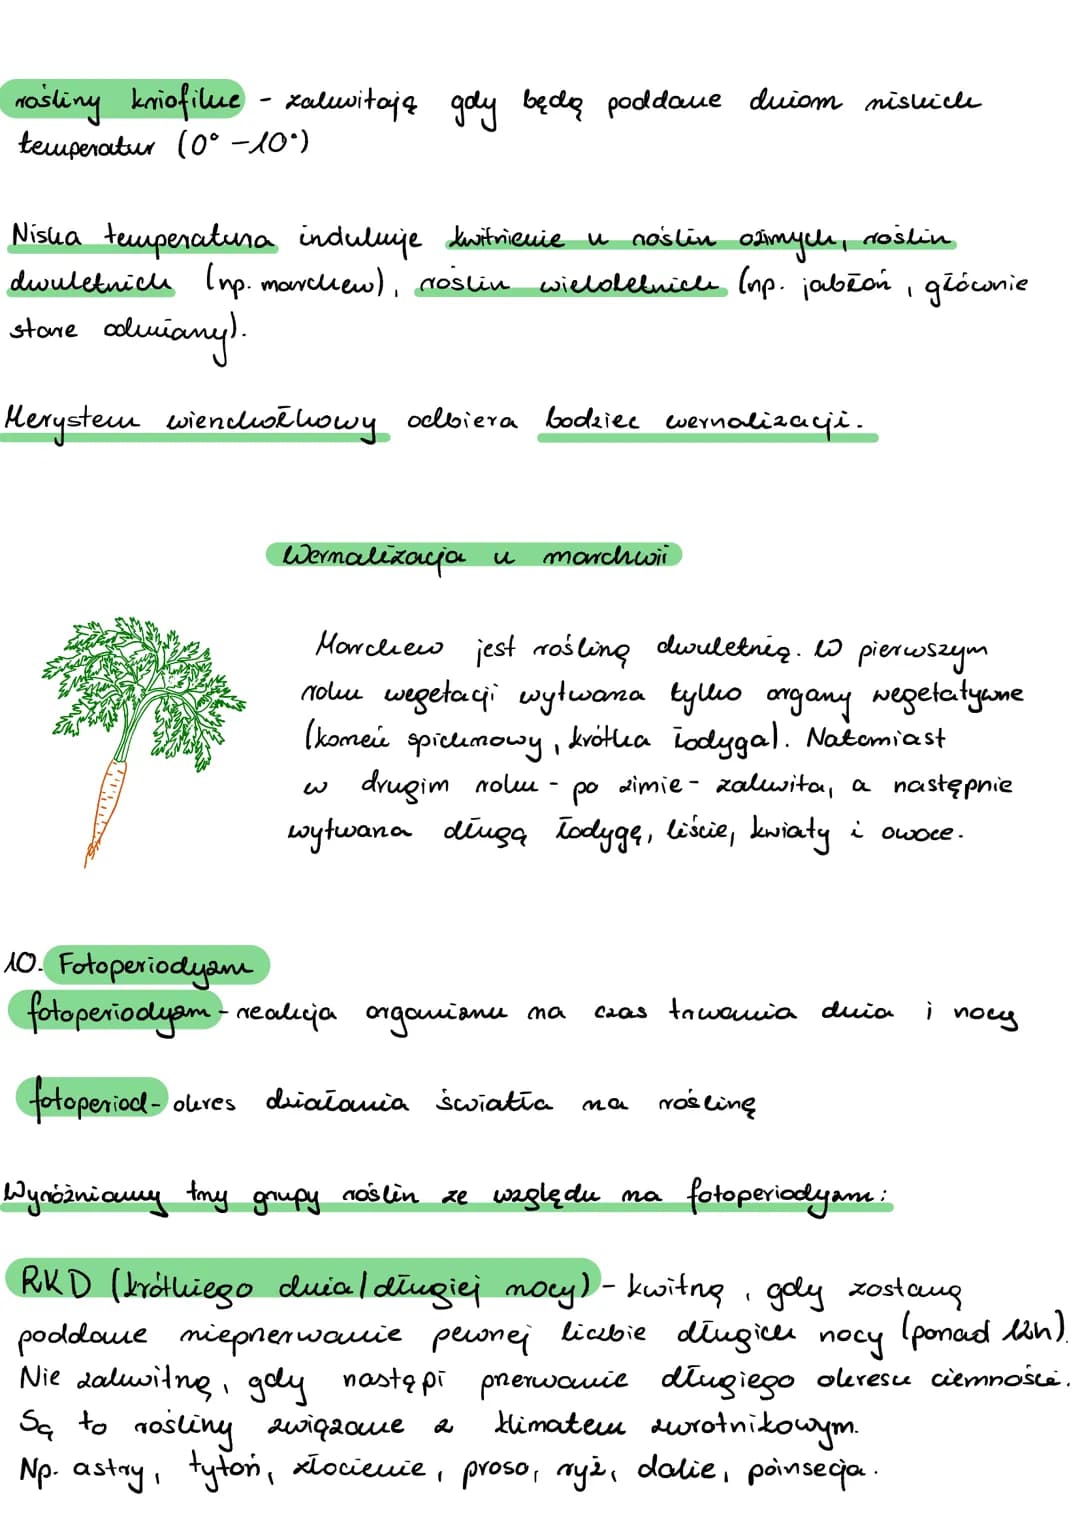 rośliny kriofilne - zakwitają gdy będą poddane dniom niskich
temperatur (0° -10°)
Niska temperatura indukuje kwitnienie u roślin ozimych, roślin
dwuletnich (np. marchew), roślin wieloletnich (np. jabłoń, głównie
stare odmiany).
Merystem wierzchołkowy odbiera bodziec wernalizacji.
Wernalizacja u marchwii
Marchew jest rośliną dwuletnią. W pierwszym
roku wegetacji wytwarza tylko organy wegetatywne
(korzeń spichrzowy, krótka łodyga). Natomiast
w drugim roku - po zimie - zakwita, a następnie
wytwarza długą łodygę, liście, kwiaty i owoce.
10. Fotoperiodyzm
fotoperiodyzm - reakcja organizmu na czas trwania dnia i nocy
fotoperiod - okres działania światła na roślinę
Wyróżniamy trzy grupy roślin ze względu na fotoperiodyzm:
RKD (krótkiego dnia/długiej nocy) - kwitną, gdy zostaną
poddane nieprzerwanie pewnej liczbie długich nocy (ponad 12h).
Nie zakwitną, gdy nastąpi przerwanie długiego okresu ciemności.
Są to rośliny związane z klimatem zwrotnikowym.
Np. astry, tytoń, złocienie, proso, ryż, dalie, poinsecja.